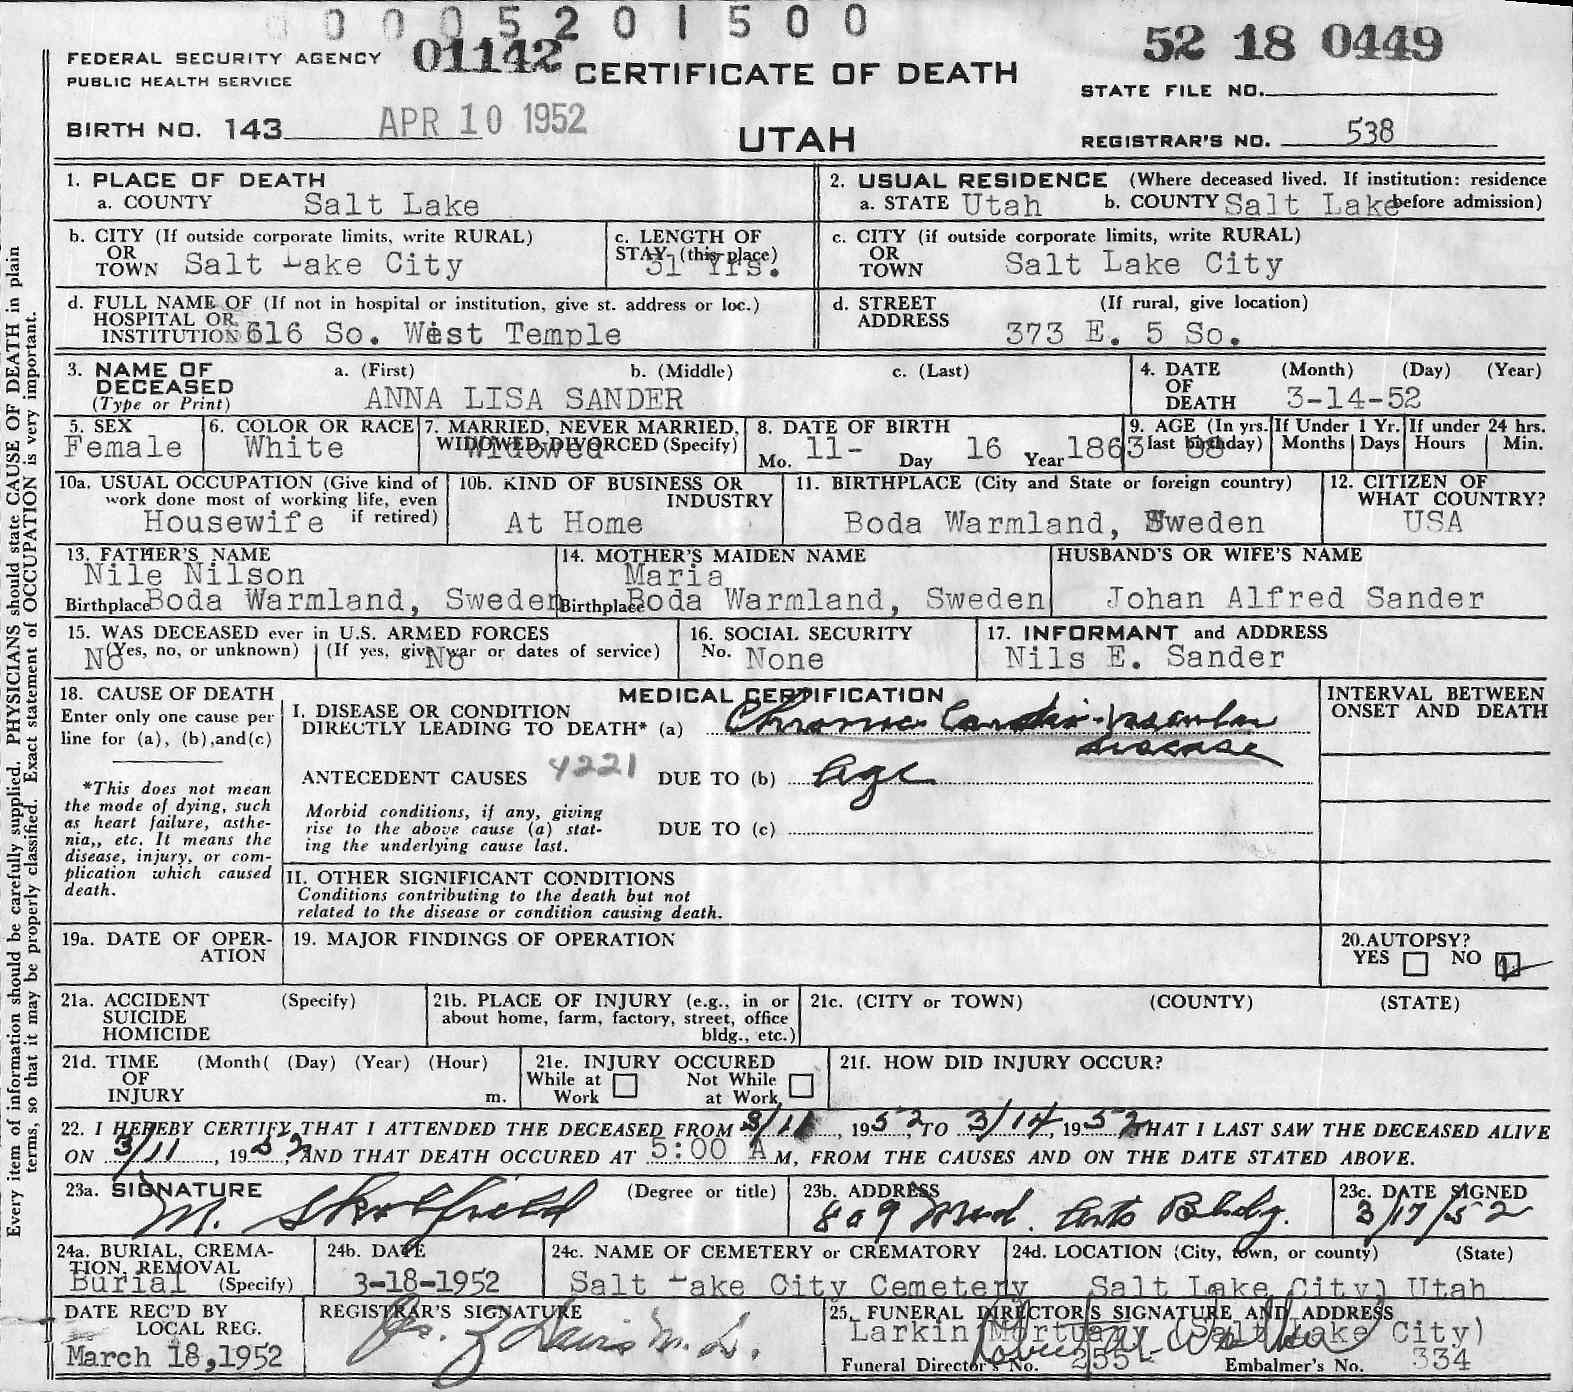 0 0 0 5 2 0 1 5 0 0
FEDERAL SECURITY AGENCY 01142 CERTIFICATE OF DEATH 52 18 0449
PUBLIC HEALTH SERVICE
STATE FILE NO.
BIRTH NO. 143 APR 10 1952 UTAH REGISTRAR'S NO. 538
1. PLACE OF DEATH
a. COUNTY Salt Lake
2. USUAL RESIDENCE (Where deceased lived. If institution: residence before admission)
a. STATE Utah b. COUNTY Salt Lake
b. CITY (If outside corporate limits, write RURAL)
OR
TOWN Salt Lake City
c. LENGTH OF
STAY (this place)
51 Yrs.
c. CITY (if outside corporate limits, write RURAL)
OR
TOWN Salt Lake City
d. FULL NAME OF (If not in hospital or institution, give st. address or loc.)
HOSPITAL OR
INSTITUTION 616 So. West Temple
d. STREET (If rural, give location)
ADDRESS 373 E. 5 So.
3. NAME OF a. (First) b. (Middle) c. (Last)
DECEASED
(Type or Print) ANNA LISA SANDER
4. DATE (Month) (Day) (Year)
OF
DEATH 3-14-52
5. SEX
Female
6. COLOR OR RACE
White
7. MARRIED, NEVER MARRIED,
WIDOWED, DIVORCED (Specify)
Widowed
8. DATE OF BIRTH
Mo. 11- Day 16 Year 1863
9. AGE (In yrs. last birthday) 88
If Under 1 Yr. Months Days
If under 24 hrs. Hours Min.
10a. USUAL OCCUPATION (Give kind of
work done most of working life, even
if retired)
Housewife
10b. KIND OF BUSINESS OR
INDUSTRY
At Home
11. BIRTHPLACE (City and State or foreign country)
Boda Warmland, Sweden
12. CITIZEN OF
WHAT COUNTRY?
USA
13. FATHER'S NAME
Nile Nilson
Birthplace Boda Warmland, Sweden
14. MOTHER'S MAIDEN NAME
Maria
Birthplace Boda Warmland, Sweden
HUSBAND'S OR WIFE'S NAME
Johan Alfred Sander
15. WAS DECEASED ever in U.S. ARMED FORCES
(Yes, no, or unknown) (If yes, give war or dates of service)
No No
16. SOCIAL SECURITY
No. None
17. INFORMANT and ADDRESS
Nils E. Sander
18. CAUSE OF DEATH
Enter only one cause per
line for (a), (b), and (c)
*This does not mean
the mode of dying, such
as heart failure, asthe-
nia,, etc. It means the
disease, injury, or com-
plication which caused
death.
MEDICAL CERTIFICATION
I. DISEASE OR CONDITION
DIRECTLY LEADING TO DEATH* (a) Chronic Cardio-Vascular
disease
ANTECEDENT CAUSES 4221 DUE TO (b) Age
Morbid conditions, if any, giving
rise to the above cause (a) stat-
ing the underlying cause last.
DUE TO (c)
II. OTHER SIGNIFICANT CONDITIONS
Conditions contributing to the death but not
related to the disease or condition causing death.
INTERVAL BETWEEN
ONSET AND DEATH
19a. DATE OF OPER-
ATION
19. MAJOR FINDINGS OF OPERATION
20. AUTOPSY?
YES NO
21a. ACCIDENT (Specify)
SUICIDE
HOMICIDE
21b. PLACE OF INJURY (e.g., in or
about home, farm, factory, street, office
bldg., etc.)
21c. (CITY or TOWN) (COUNTY) (STATE)
21d. TIME (Month( (Day) (Year) (Hour)
OF
INJURY m.
21e. INJURY OCCURED
While at Work Not While at Work
21f. HOW DID INJURY OCCUR?
22. I HEREBY CERTIFY THAT I ATTENDED THE DECEASED FROM 3/11, 1952, TO 3/14, 1952 THAT I LAST SAW THE DECEASED ALIVE
ON 3/11, 1952, AND THAT DEATH OCCURED AT 5:00 A M, FROM THE CAUSES AND ON THE DATE STATED ABOVE.
23a. SIGNATURE (Degree or title)
M. Skolfield
23b. ADDRESS
809 Med. Arts Bldg.
23c. DATE SIGNED
3/17/52
24a. BURIAL, CREMA-
TION, REMOVAL
Burial (Specify)
24b. DATE
3-18-1952
24c. NAME OF CEMETERY or CREMATORY
Salt Lake City Cemetery
24d. LOCATION (City, town, or county) (State)
Salt Lake City) Utah
DATE REC'D BY
LOCAL REG.
March 18, 1952
REGISTRAR'S SIGNATURE
25. FUNERAL DIRECTOR'S SIGNATURE AND ADDRESS
Larkin Mortuary (Salt Lake City)
Funeral Director's No. 255 Embalmer's No. 334
Every item of information should be carefully supplied. PHYSICIANS should state CAUSE OF DEATH in plain
terms, so that it may be properly classified. Exact statement of OCCUPATION is very important.